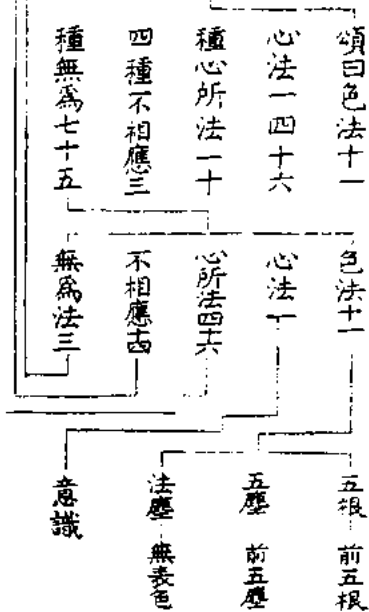 頌曰色法十一
心法一四十六
種心所法一十
四種不相應三
種無為七十五
色法十一
心法一
心所法四六
不相應十四
無為法三
五根 前五根
五塵 前五塵
法塵 無表色
意識